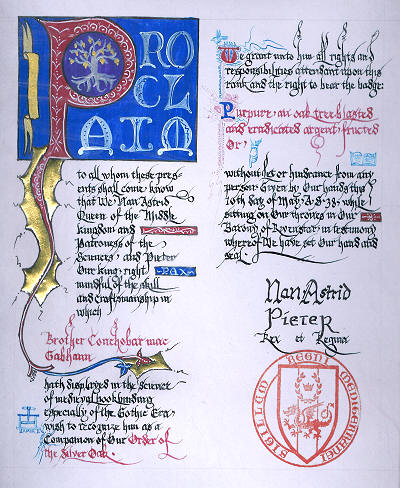 PRO
CL
AIM
to all whom these pres-
ents shall come, know
that We, Nan Astrid
Queen of the Middle
kingdom and
Patroness of the
Sciences, and Pieter
Our king, right
PAX
mindful of the skill
and craftsmanship in
which
Brother Conchobar mac
Gabhann
hath displayed in the science
of medieval bookbinding
especially of the Gothic Era,
wish to recognize him as a
Companion of Our Order of
the Silver Oak.
We grant unto him all rights and
responsibilities attendant upon this
rank and the right to bear the badge:
Purpure, an oak tree blasted
and eradicated argent fructed
Or,
without let or hindrance from any
person. Given by Our hands this
10th day of May, A.S. 38, while
sitting on Our thrones in Our
Barony of in testimony
whereof We have set Our hand and
seal.
Nan Astrid
Pieter
Rex et Regina
SIGILLEM REGNI MEDITERRANEI